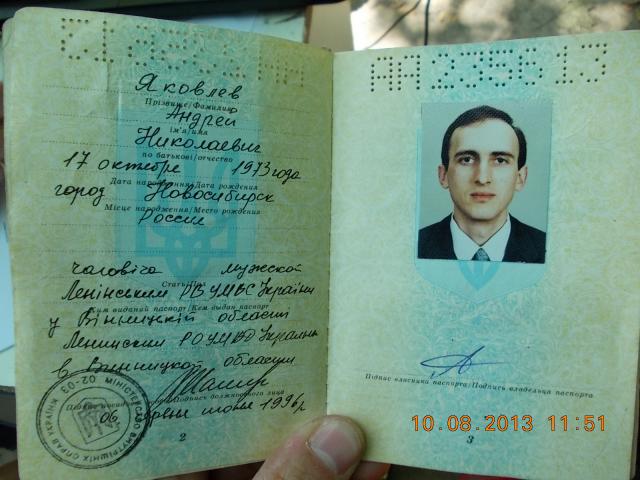 АА235613
Яковлев
Прізвище/Фамилия
Андрей
ім'я/имя
Николаевич
по батькові/отчество
17 октября 1973 года
Дата народження/Дата рождения
город Новосибирск
Місце народження/Место рождения
Россия
чоловіча мужской
Стать
Ленінським РВ УМВС України
Ким виданий паспорт/Кем выдан паспорт
у Вінницькій області
Ленинским РО УМВД Украины
в Винницкой области
Підпис посадової должностного лица
06 июня 1996р
МІНІСТЕРСТВО ВНУТРІШНІХ СПРАВ УКРАЇНИ
02-03
2
Підпис власника паспорта/Подпись владельца паспорта
10.08.2013 11:51
3